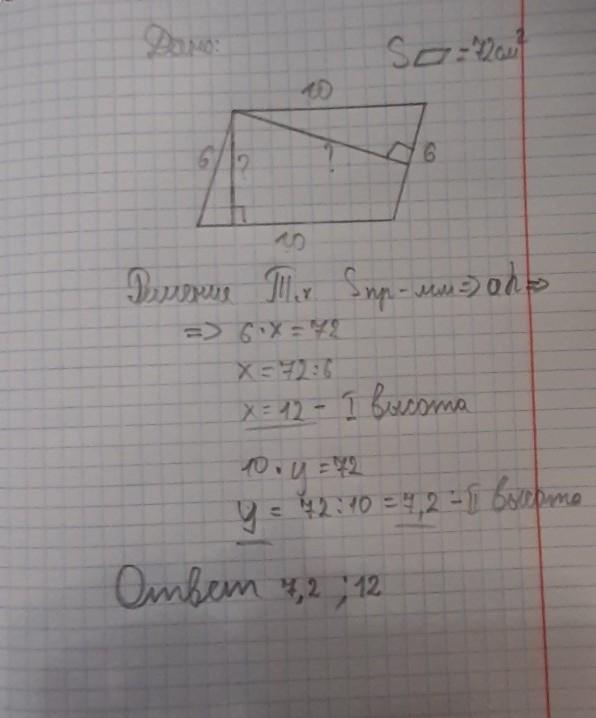 Дано: S▱ = 72 см²
10
6 ? ? 6
10
Решение Т.к Sпр-мм => ah =>
=> 6·x = 72
x = 72:6
x = 12 - I высота
10·y = 72
y = 72:10 = 7,2 - II высота
Ответ 7,2 ; 12